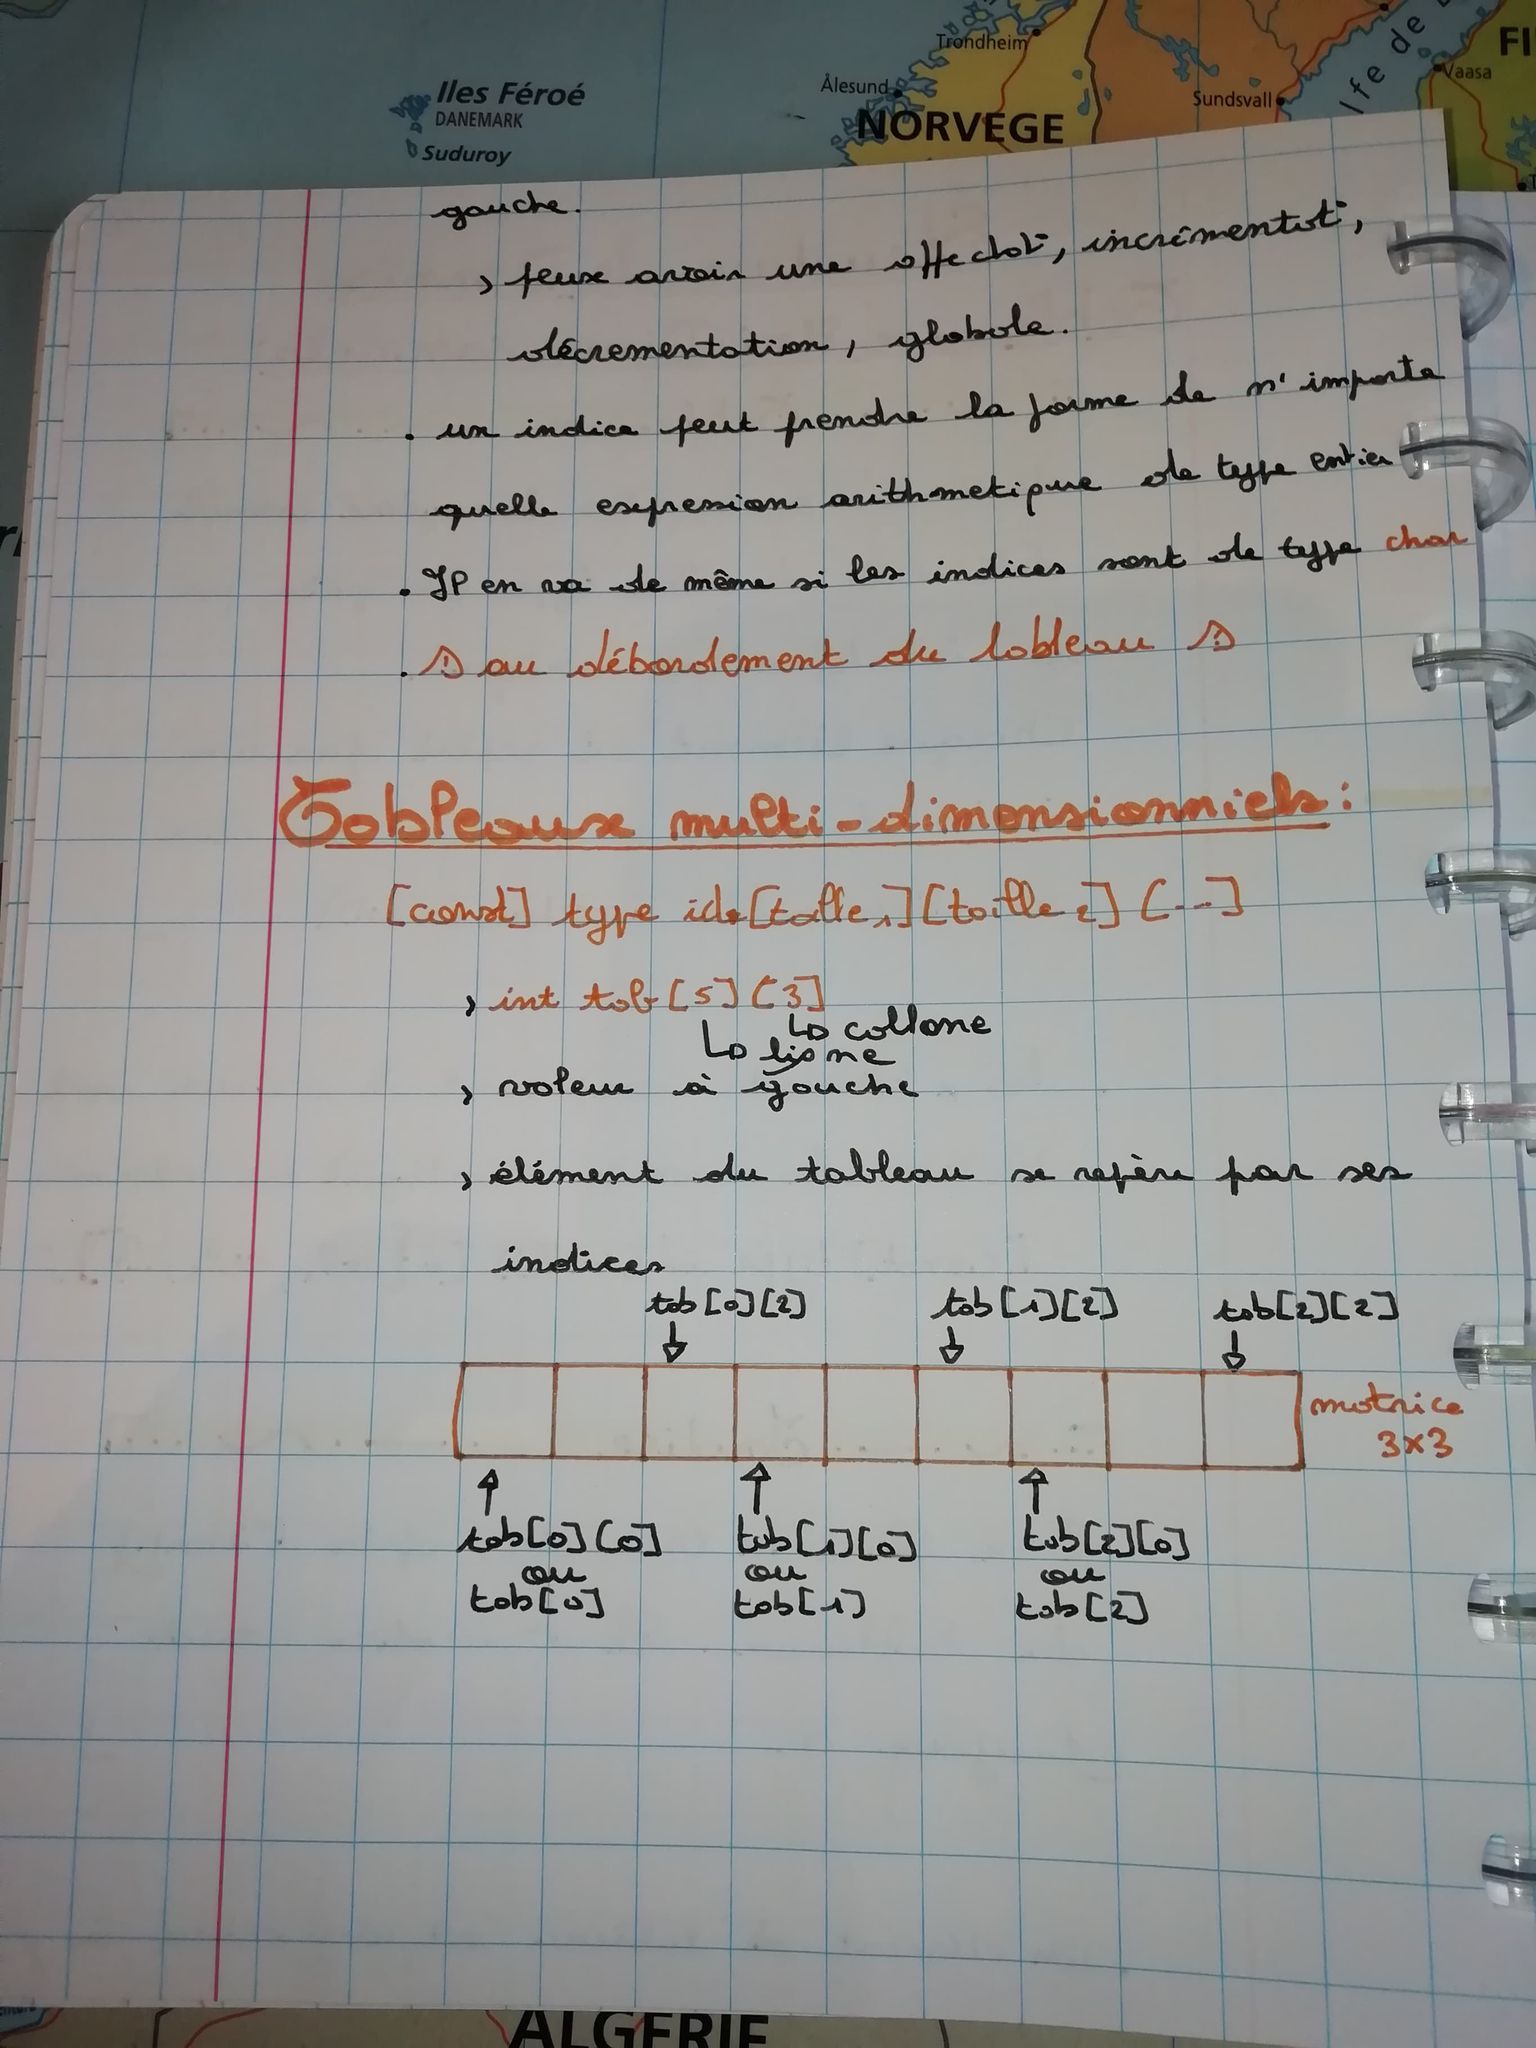 Trondheim
FI
Iles Féroé
DANEMARK
Suduroy
Ålesund
NORVEGE
Sundsvall
lfe de
Vaasa
gauche.
> peux avoir une affectat°, incrémentat°,
décrementation, globale.
. un indice peut prendre la forme de n'importe
quelle expression arithmetique de type entier
. Il en va de même si les indices sont de type char
. au débordement du tableau
Tableaux multi-dimensionniels :
[const] type id [taille 1] [taille 2] [...]
> int tab [5] [3]
↳ collone
↳ ligne
> valeur à gauche
> élément du tableau se repère par ses
indices
tab[0][2] tab[1][2] tab[2][2]
matrice
3x3
tab[0][0] tab[1][0] tab[2][0]
ou ou ou
tab[0] tab[1] tab[2]
ALGERIE